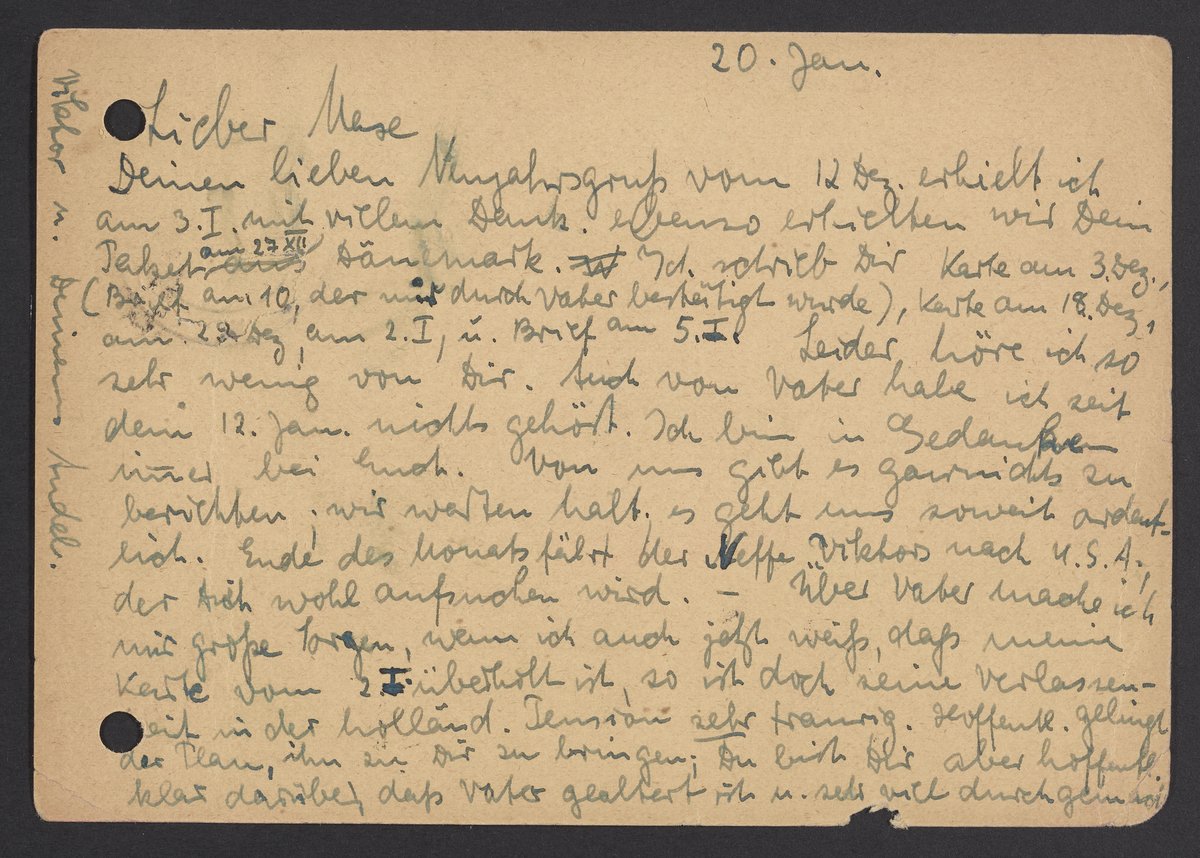 20. Jan.
Lieber Mase
Deinen lieben Neujahrsgruß vom 12 Dez. erhielt ich
am 3. I. mit vielem Dank. ebenso erhielten wir Dein
am 27 XII
Paket aus Dänemark. Ich schrieb Dir Karte am 3. Dez.,
(Brief am 10, der mir durch Vater bestätigt wurde), Karte am 18. Dez,
am 29 Dez, am 2. I, u. Brief am 5. I. Leider höre ich so
sehr wenig von Dir. Auch von Vater habe ich seit
dem 12. Jan. nichts gehört. Ich bin in Gedanken
im̅er bei Euch. Von uns gibt es garnichts zu
berichten; wir warten halt, es geht uns soweit ordent-
lich. Ende des Monats fährt der Neffe Viktors nach U.S.A.,
der Dich wohl aufsuchen wird. – Über Vater mache ich
mir große Sorgen, wenn ich auch jetzt weiß, daß meine
Karte vom 2 I. überholt ist, so ist doch seine Verlassen-
heit in der holländ. Pension sehr traurig. Hoffentl. gelingt
der Plan, ihn zu Dir zu bringen; Du bist Dir aber hoffentl.
klar darüber, daß Vater gealtert ist u. sehr viel durchgemacht
Viktor u. Deinem Rudel.